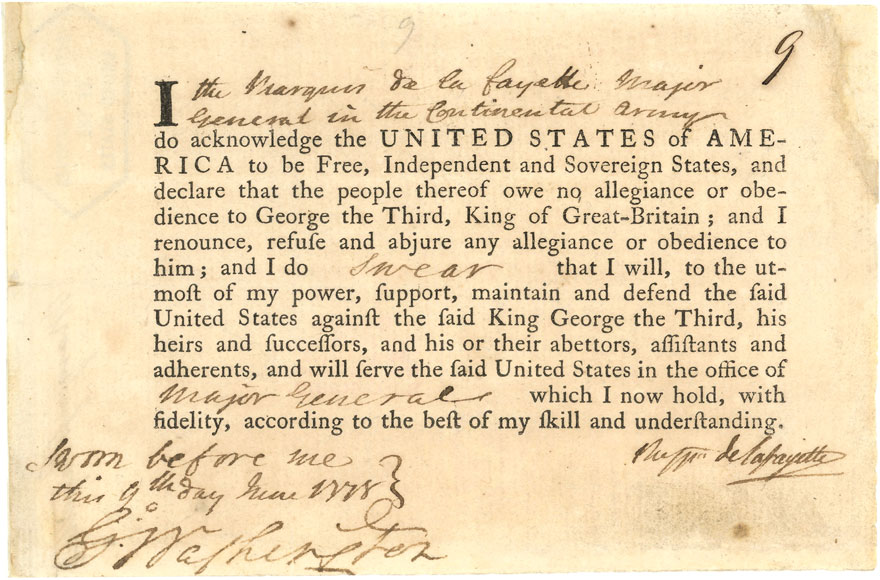 9
9
I the Marquis de la fayette Major
General in the Continental Army
do acknowledge the UNITED STATES of AME-
RICA to be Free, Independent and Sovereign States, and
declare that the people thereof owe no allegiance or obe-
dience to George the Third, King of Great-Britain ; and I
renounce, refuſe and abjure any allegiance or obedience to
him ; and I do Swear that I will, to the ut-
moſt of my power, ſupport, maintain and defend the ſaid
United States againſt the ſaid King George the Third, his
heirs and ſucceſſors, and his or their abettors, aſſiſtants and
adherents, and will ſerve the ſaid United States in the office of
Major General which I now hold, with
fidelity, according to the beſt of my ſkill and underſtanding.
Sworn before me
this 9th day June 1778
de Lafayette
Go: Washington